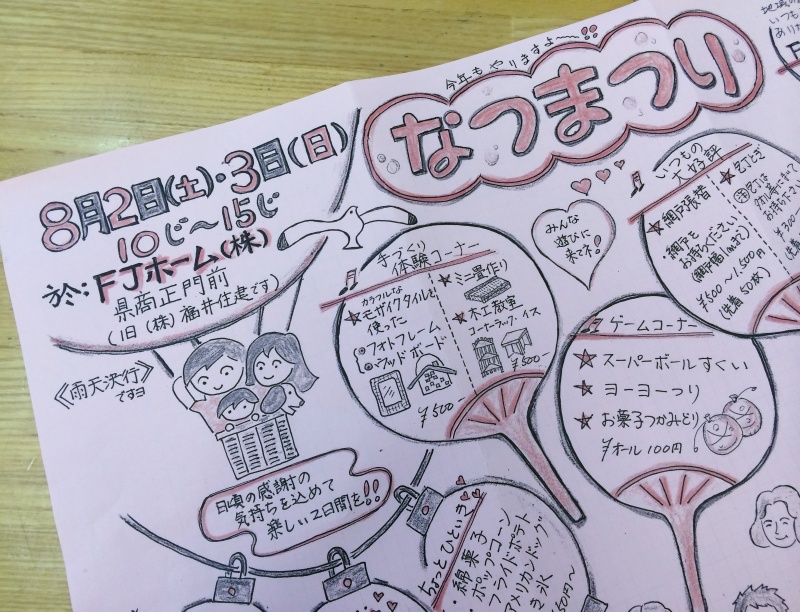 今年もやりますよ〜
なつまつり
8月2日(土)・3日(日)
10じ〜15じ
於:FJホーム(株)
県商正門前
(旧(株)福井住建です)
《雨天決行》
ですヨ
みんな
遊びに
来てネ!
手づくり
体験コーナー
カラフルな
モザイクタイルを
使った
フォトフレーム
ウッドボード
¥500-
ミニ畳作り
木工教室
コーナーラック・イス
¥500-
いつもの
大好評
網戸張替
網戸を
お持ちください
¥500〜1,500円
(先着50枚)
包丁とぎ
お待ちください
¥300-
ゲームコーナー
スーパーボールすくい
ヨーヨーつり
お菓子つかみどり
オール100円
日頃の感謝の
気持ちを込めて
楽しい2日間を!!
ちょっとひといき
・綿菓子
・ポップコーン
フライドポテト
アメリカンドッグ
き氷